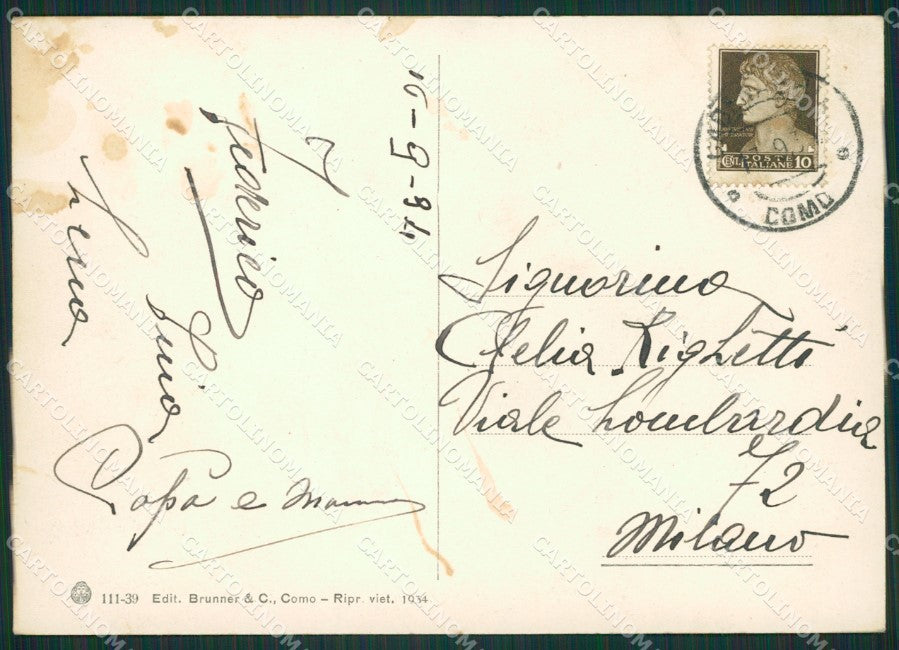 18-5-10
Federico
Lena
Luisa
Papa e Mamma
Signorina
Clelia Righetti
Viale Lombardia
72
Milano
POSTE
CENT. ITALIANE 10
COMO
111-39 Edit. Brunner & C., Como – Ripr. viet. 1934
CARTOLINOMANIA